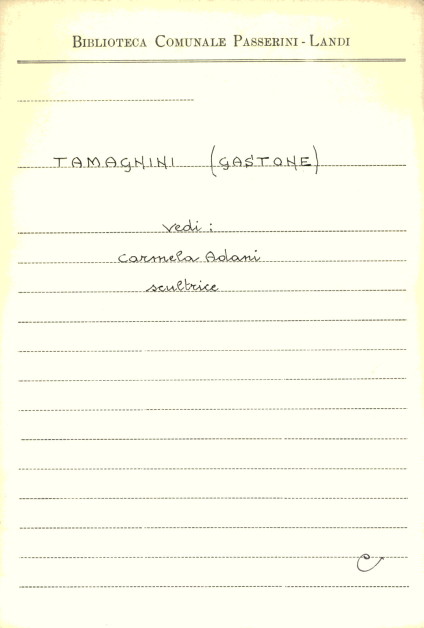 BIBLIOTECA COMUNALE PASSERINI - LANDI
TAMAGNINI (GASTONE)
vedi :
Carmela Adani
scultrice
C